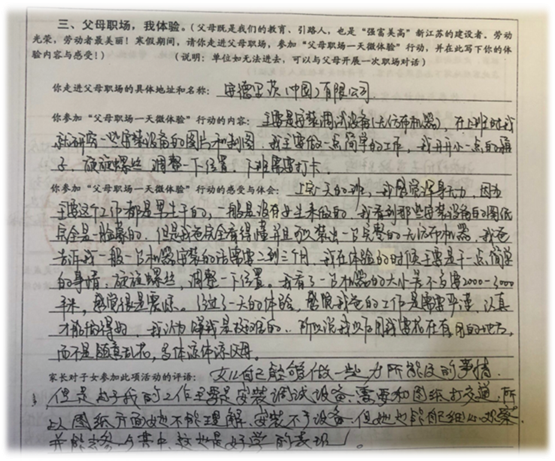 三、父母职场，我体验。（父母既是我们的教育、引路人，也是“强富美高”新江苏的建设者。劳动
光荣，劳动者最美丽！寒假期间，请你走进父母职场，参加“父母职场一天微体验”行动，并在此写下你的体
验内容与感受！）（说明：单位如无法进去，可以与父母开展一次职场对话）
你走进父母职场的具体地址和名称：安德里茨（中国）有限公司
你参加“父母职场一天微体验”行动的内容：主要是安装调试设备（无纺布机器），在上班时我
就研究一些安装设备的图片和制图，我主要做一点简单的工作，我
子、旋旋螺丝、调整一下位置、下班需要打卡。
你参加“父母职场一天微体验”行动的感受与体会：上完一天的班，我感觉浑身无力，因为
主要这个工作都是男生干的，一般是没有女生来做的。我看到那些安装设备的图纸
完全是一脸蒙的，但是我爸完全看得懂并且可以装出一台完整的无纺布机器。我爸
告诉我一般一台机器安装的话需要二到三个月，我在体验的时候主要是干一点简单
的事情，旋旋螺丝，调整一下位置。我看了一台机器的大小差不多要2000-3000
平米，感觉很是震惊。经过了一天的体验，感觉我爸的工作是需要严谨、认真
才能做得好，我认为赚钱是挺难的，所以说我以后用钱要花在有用的地方，
而不是随意乱花，多体谅体谅父母。
家长对子女参加此项活动的评语：女儿自己能够做一些力所能及的事情，
但是由于我的工作主要是安装调试设备，需要和图纸打交道，所
以图纸方面她不能理解，安装不了设备，但她也能仔细心观察
并能去参与其中，这也是好学的表现！